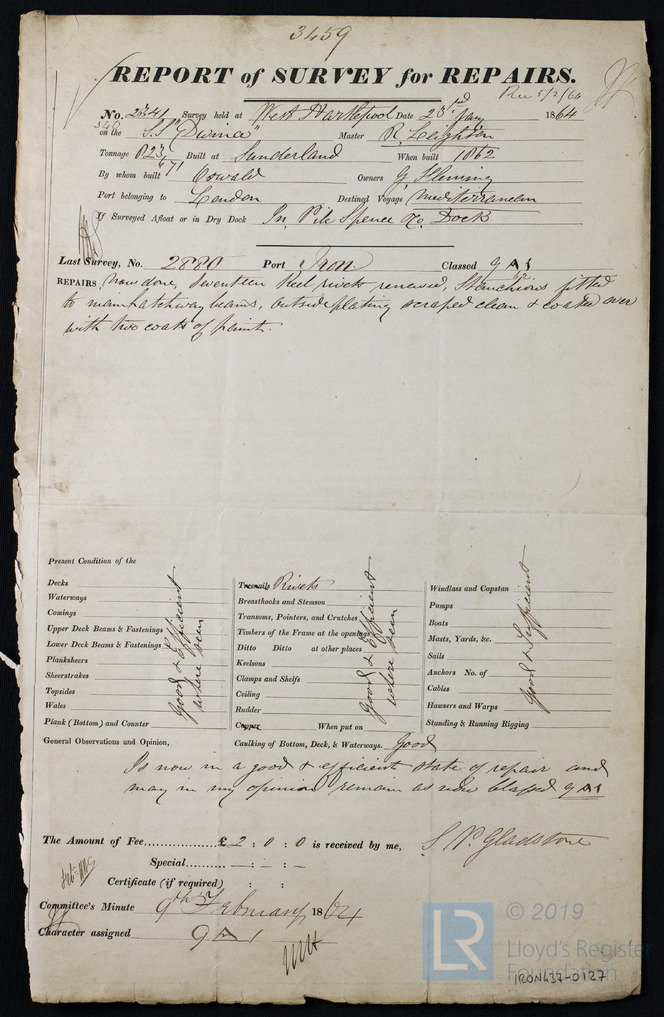 3459
REPORT of SURVEY for REPAIRS.
Rec 5/2/64
No. 2341 Survey held at West Hartlepool Date 23rd Jany 1864
on the S.S "Dwina" Master R. Leighton
Tonnage 823 Built at Sunderland When built 1862
671
By whom built Oswald Owners G. Fleming
Port belonging to London Destined Voyage Mediterranean
If Surveyed Afloat or in Dry Dock In Pile Spence & Co. Dock
Last Survey, No. 2880 Port Iron Classed 9 A 1
62
REPAIRS Now done, Seventeen Keel rivets renewed, Stanchions fitted
to main hatchway beams, outside plating scraped clean & coated over
with two coats of paint.
Present Condition of the
Decks
Waterways
Comings
Upper Deck Beams & Fastenings
Lower Deck Beams & Fastenings
Planksheers
Sheerstrakes
Topsides
Wales
Plank (Bottom) and Counter
Good & Efficient
where seen
Treenails Rivets
Breasthooks and Stemson
Transoms, Pointers, and Crutches
Timbers of the Frame at the openings
Ditto Ditto at other places
Keelsons
Clamps and Shelfs
Ceiling
Rudder
Copper When put on
Caulking of Bottom, Deck, & Waterways. Good
Good & Efficient
where seen
Windlass and Capstan
Pumps
Boats
Masts, Yards, &c.
Sails
Anchors No. of
Cables
Hawsers and Warps
Standing & Running Rigging
Good & Sufficient
General Observations and Opinion,
Is now in a good & efficient state of repair and
may in my opinion remain as now Classed 9 A 1
The Amount of Fee £ 2 : 0 : 0 is received by me, S. P. Gladstone
Special
Certificate (if required)
Committee's Minute 9th February 1864
Character assigned 9 A 1
LR
© 2019
Lloyd's Register
Foundation
IRON437-0127